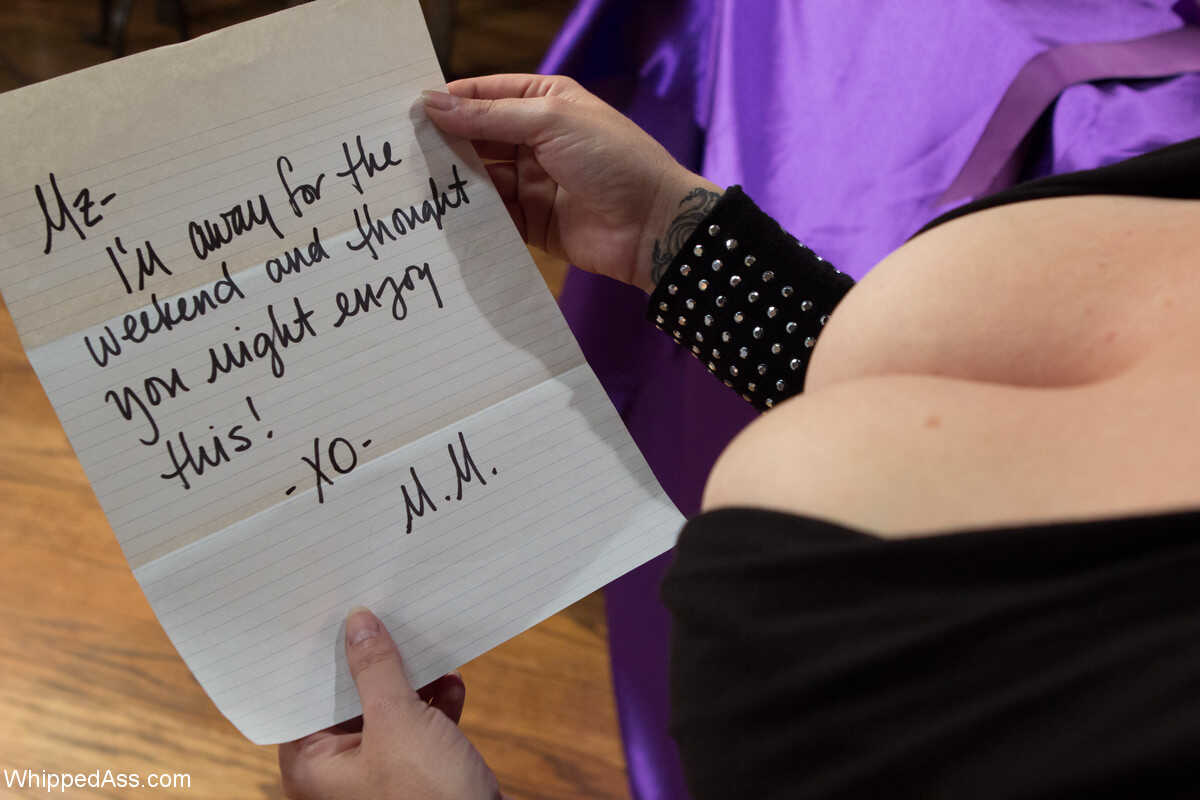 Mz-
I'm away for the
weekend and thought
you might enjoy
this!
-XO-
M.M.
WhippedAss.com